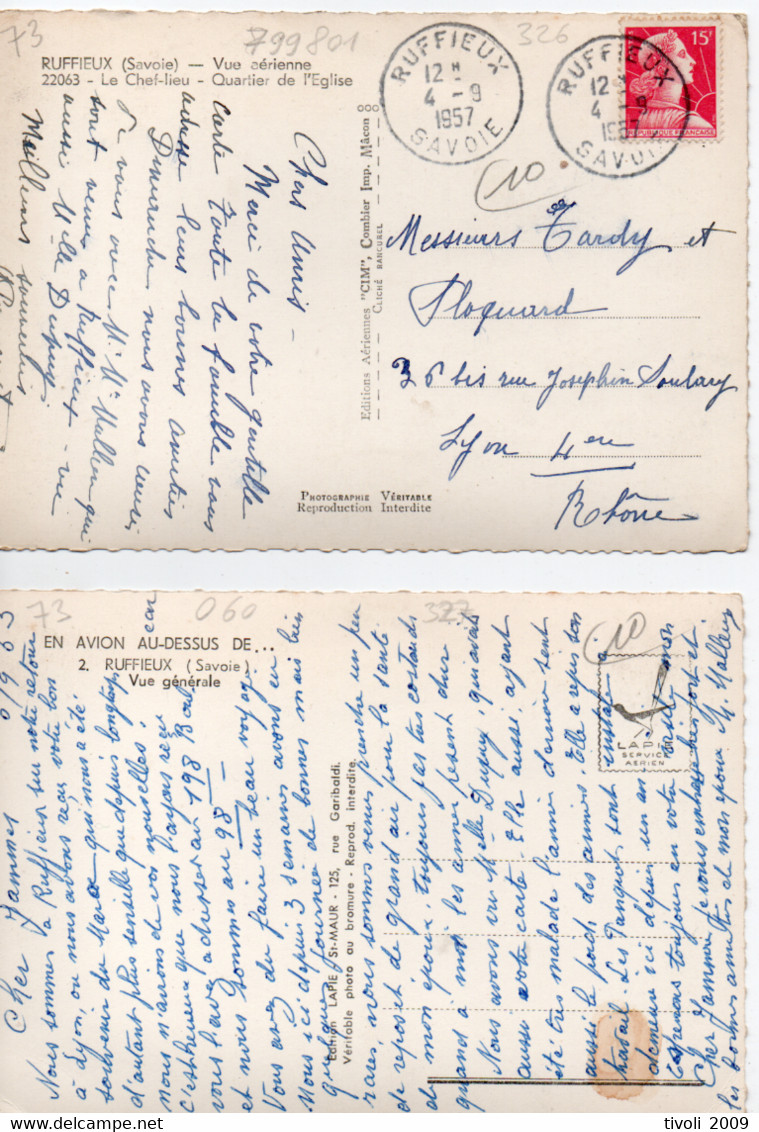 73
799801
326
RUFFIEUX (Savoie) — Vue aérienne
22063 - Le Chef-lieu - Quartier de l'Eglise
RUFFIEUX
12H
4 -9
1957
SAVOIE
RUFFIEUX
12H
4 -9
1957
SAVOIE
15F
REPUBLIQUE FRANÇAISE
10
Chers Amis -
Merci de votre gentille
carte Toute la famille vous
adresse leurs bonnes amitiés
Dimanche nous avons aussi
vous avec Mr Mme Mallen qui
sont venus à Ruffieux - vu
aussi Melle Dupuy
Meilleurs souvenirs
Editions Aériennes "CIM", Combier Imp. Mâcon
CLICHÉ RANCUREL
PHOTOGRAPHIE VÉRITABLE
Reproduction Interdite
Messieurs Tardy et
Ploquard
36 bis rue Joséphin Soulary
Lyon 4ere
Rhône
73
060
327
10
EN AVION AU-DESSUS DE...
2. RUFFIEUX (Savoie)
Vue générale
Cher Jammes
Nous sommes à Ruffieux sur notre retour
à Lyon, ou nous avons reçu votre bon
souvenir du Maroc qui nous a été
d'autant plus sensible que depuis longtemps
nous n'avions de vos nouvelles. car
c'est heureux que nous l'ayons reçu
vous l'avez adressée au 198 Boul
et nous sommes au 98 -
Vous avez du faire un beau voyage.
Nous ici depuis 3 semaines avons eu
quelques journées de bonnes mais bien
Edition LAPIE St-MAUR - 125, rue Garibaldi.
Véritable photo au bromure - Reprod. interdite.
rares, nous sommes venus prendre un peu
de repos et de grand air pour la santé
de mon époux, toujours pas très costauds
quand à moi les années pèsent dure
Nous avons vu Melle Dupuy, qui avait
aussi votre carte. Elle aussi, ayant
été très malade l'année dernière sent
aussi le poids des années. Elle a repris son
travail. Les Panquet sont installé à
demeure ici depuis un an.
toujours en votre
Cher Jammes je vous embrasse bien fort et
les bonnes amitiés de mon époux M. Mallen
LAPIE
SERVICE
AERIEN
tivoli 2009